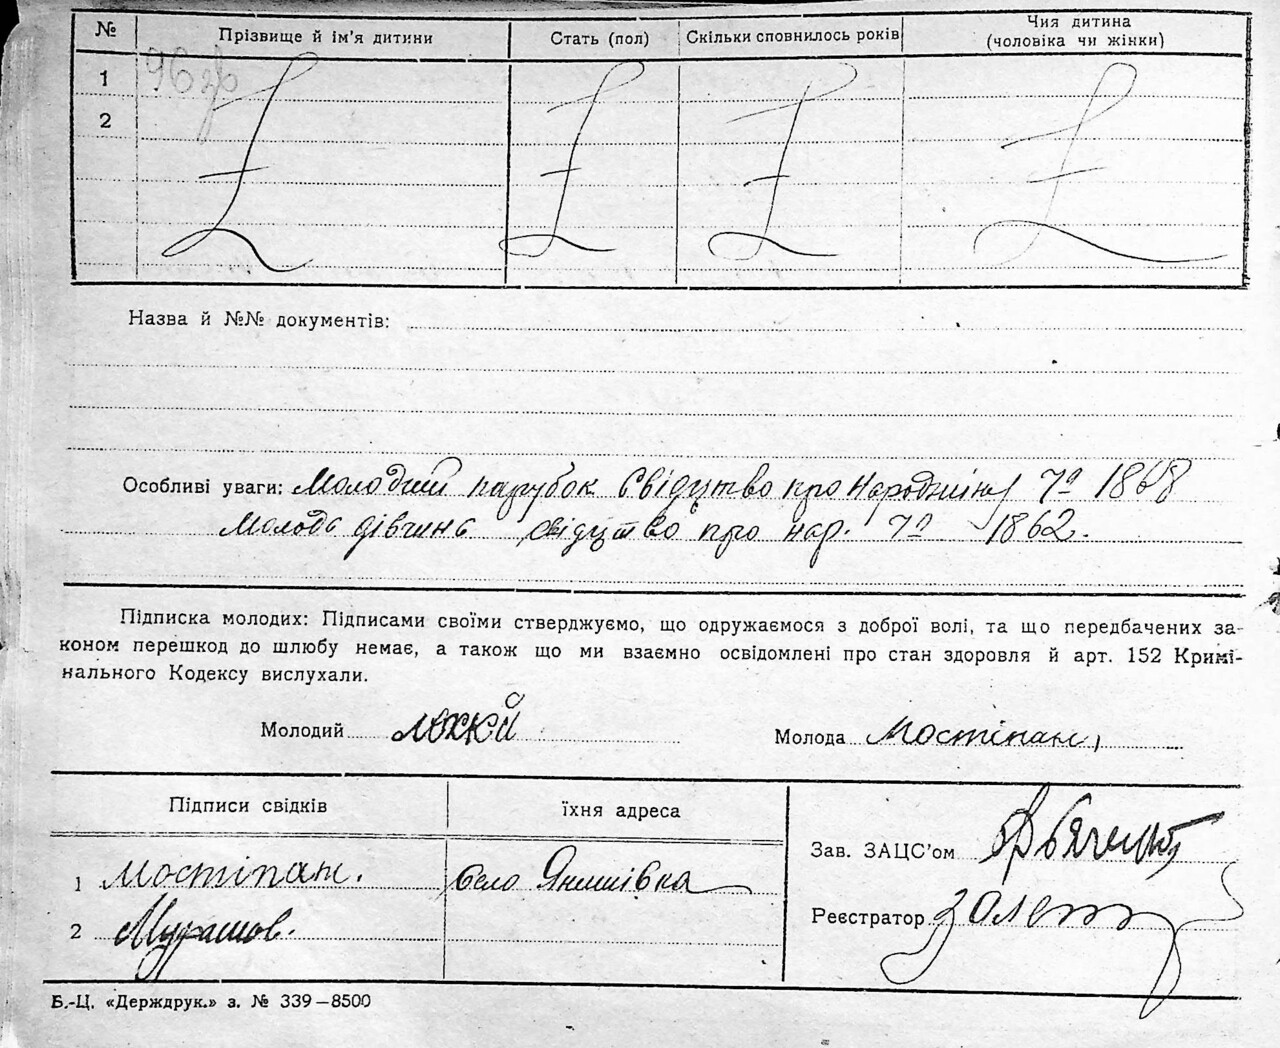 № Прізвище й ім'я дитини Стать (пол) Скільки сповнилось років Чия дитина
(чоловіка чи жінки)
1
2
Назва й №№ документів:
Особливі уваги: Молодий парубок Свідуцтво про Народжіня 7д 1868
Молода дівчина свідуцтво про нар. 7д 1862.
Підписка молодих: Підписами своїми стверджуємо, що одружаємося з доброї волі, та що передбачених за-
коном перешкод до шлюбу немає, а також що ми взаємно освідомлені про стан здоровля й арт. 152 Кримі-
нального Кодексу вислухали.
Молодий Молода Мостіпан
Підписи свідків їхня адреса
Зав. ЗАЦС'ом
1 Мостіпан. Село
Реєстратор
2
Б.-Ц. «Держдрук.» з. № 339–8500